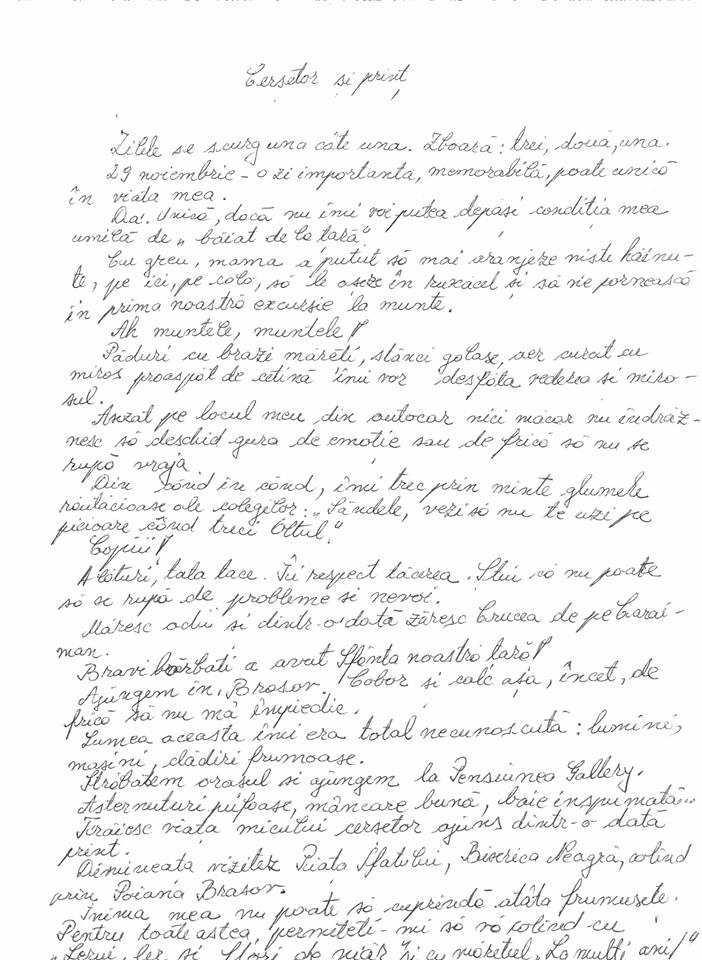 Cerșetor și prinț
Zilele se scurg una câte una. Zboară: trei, două, una.
29 noiembrie - o zi importantă, memorabilă, poate unică
în viața mea.
Da! Unică, dacă nu îmi voi putea depăși condiția mea
umilă de „băiat de la țară".
Cu greu, mama a putut să mai aranjeze niște hăinu-
țe, pe ici, pe colo, să le așeze în ruxăcel și să ne pornească
în prima noastră excursie la munte.
Ah muntele, muntele!
Păduri cu brazi măreți, stânci golașe, aer curat cu
miros proaspăt de cetină îmi vor desfăta vederea și miro-
sul.
Așezat pe locul meu din autocar nici măcar nu îndrăz-
nesc să deschid gura de emoție sau de frică să nu se
rupă vraja.
Din când în când, îmi trec prin minte glumele
răutăcioase ale colegilor: „Săndele, vezi să nu te uzi pe
picioare când treci Oltul."
Copiii!
Alături, tata tace. Îi respect tăcerea. Știu că nu poate
să se rupă de probleme și nevoi.
Măresc ochii și dintr-o dată zăresc Crucea de pe Carai-
man.
Bravi bărbați a avut Sfânta noastră țară!
Ajungem în Brașov. Cobor și calc așa, încet, de
frică să nu mă împiedic.
Lumea aceasta îmi era total necunoscută: lumini,
mașini, clădiri frumoase.
Străbatem orașul și ajungem la Pensiunea Gallery.
Așternuturi pufoase, mâncare bună, baie înspumată...
Trăiesc viața micului cerșetor ajuns dintr-o dată
prinț.
Dimineața vizitez Piața Sfatului, Biserica Neagră, colind
prin Poiana Brașov.
Inima mea nu poate să cuprindă atâta frumusețe.
Pentru toate astea, permiteți-mi să vă colind cu
„Lerui, ler și flori de măr" și cu mărețul „La mulți ani!"